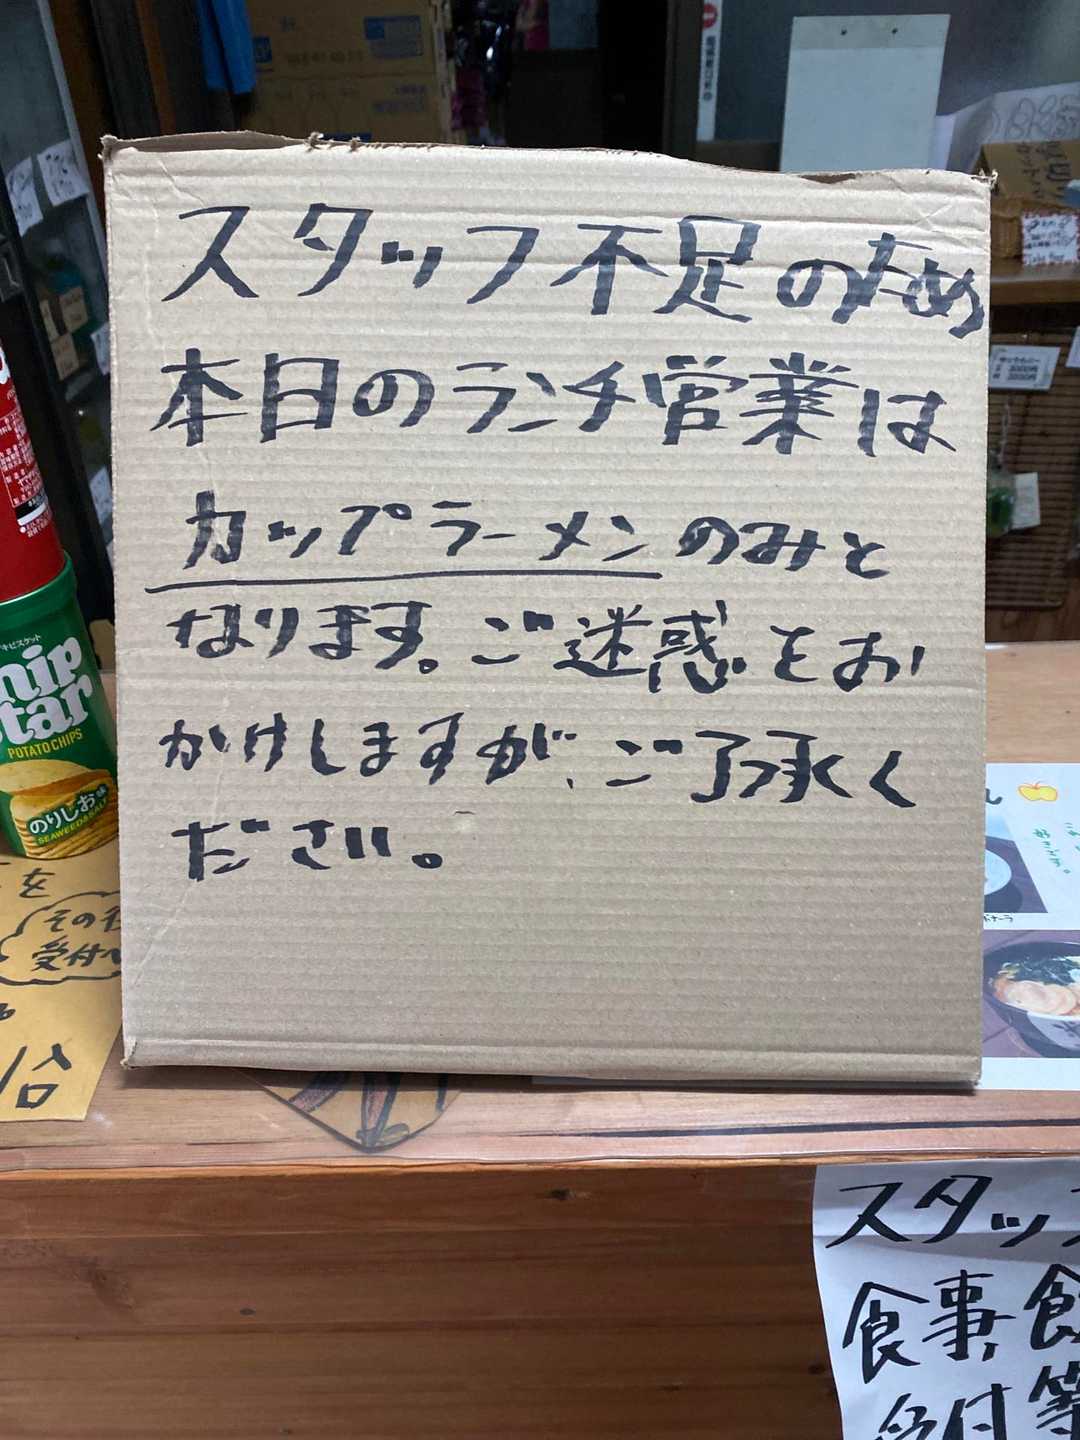 スタッフ不足のため
本日のランチ営業は
カップラーメンのみと
なります。ご迷惑をお
かけしますが、ご了承く
ださい。
hip
Star
POTATO CHIPS
のりしお味
SEAWEED & SALT
を
受付
スタッ
食事、
受付等